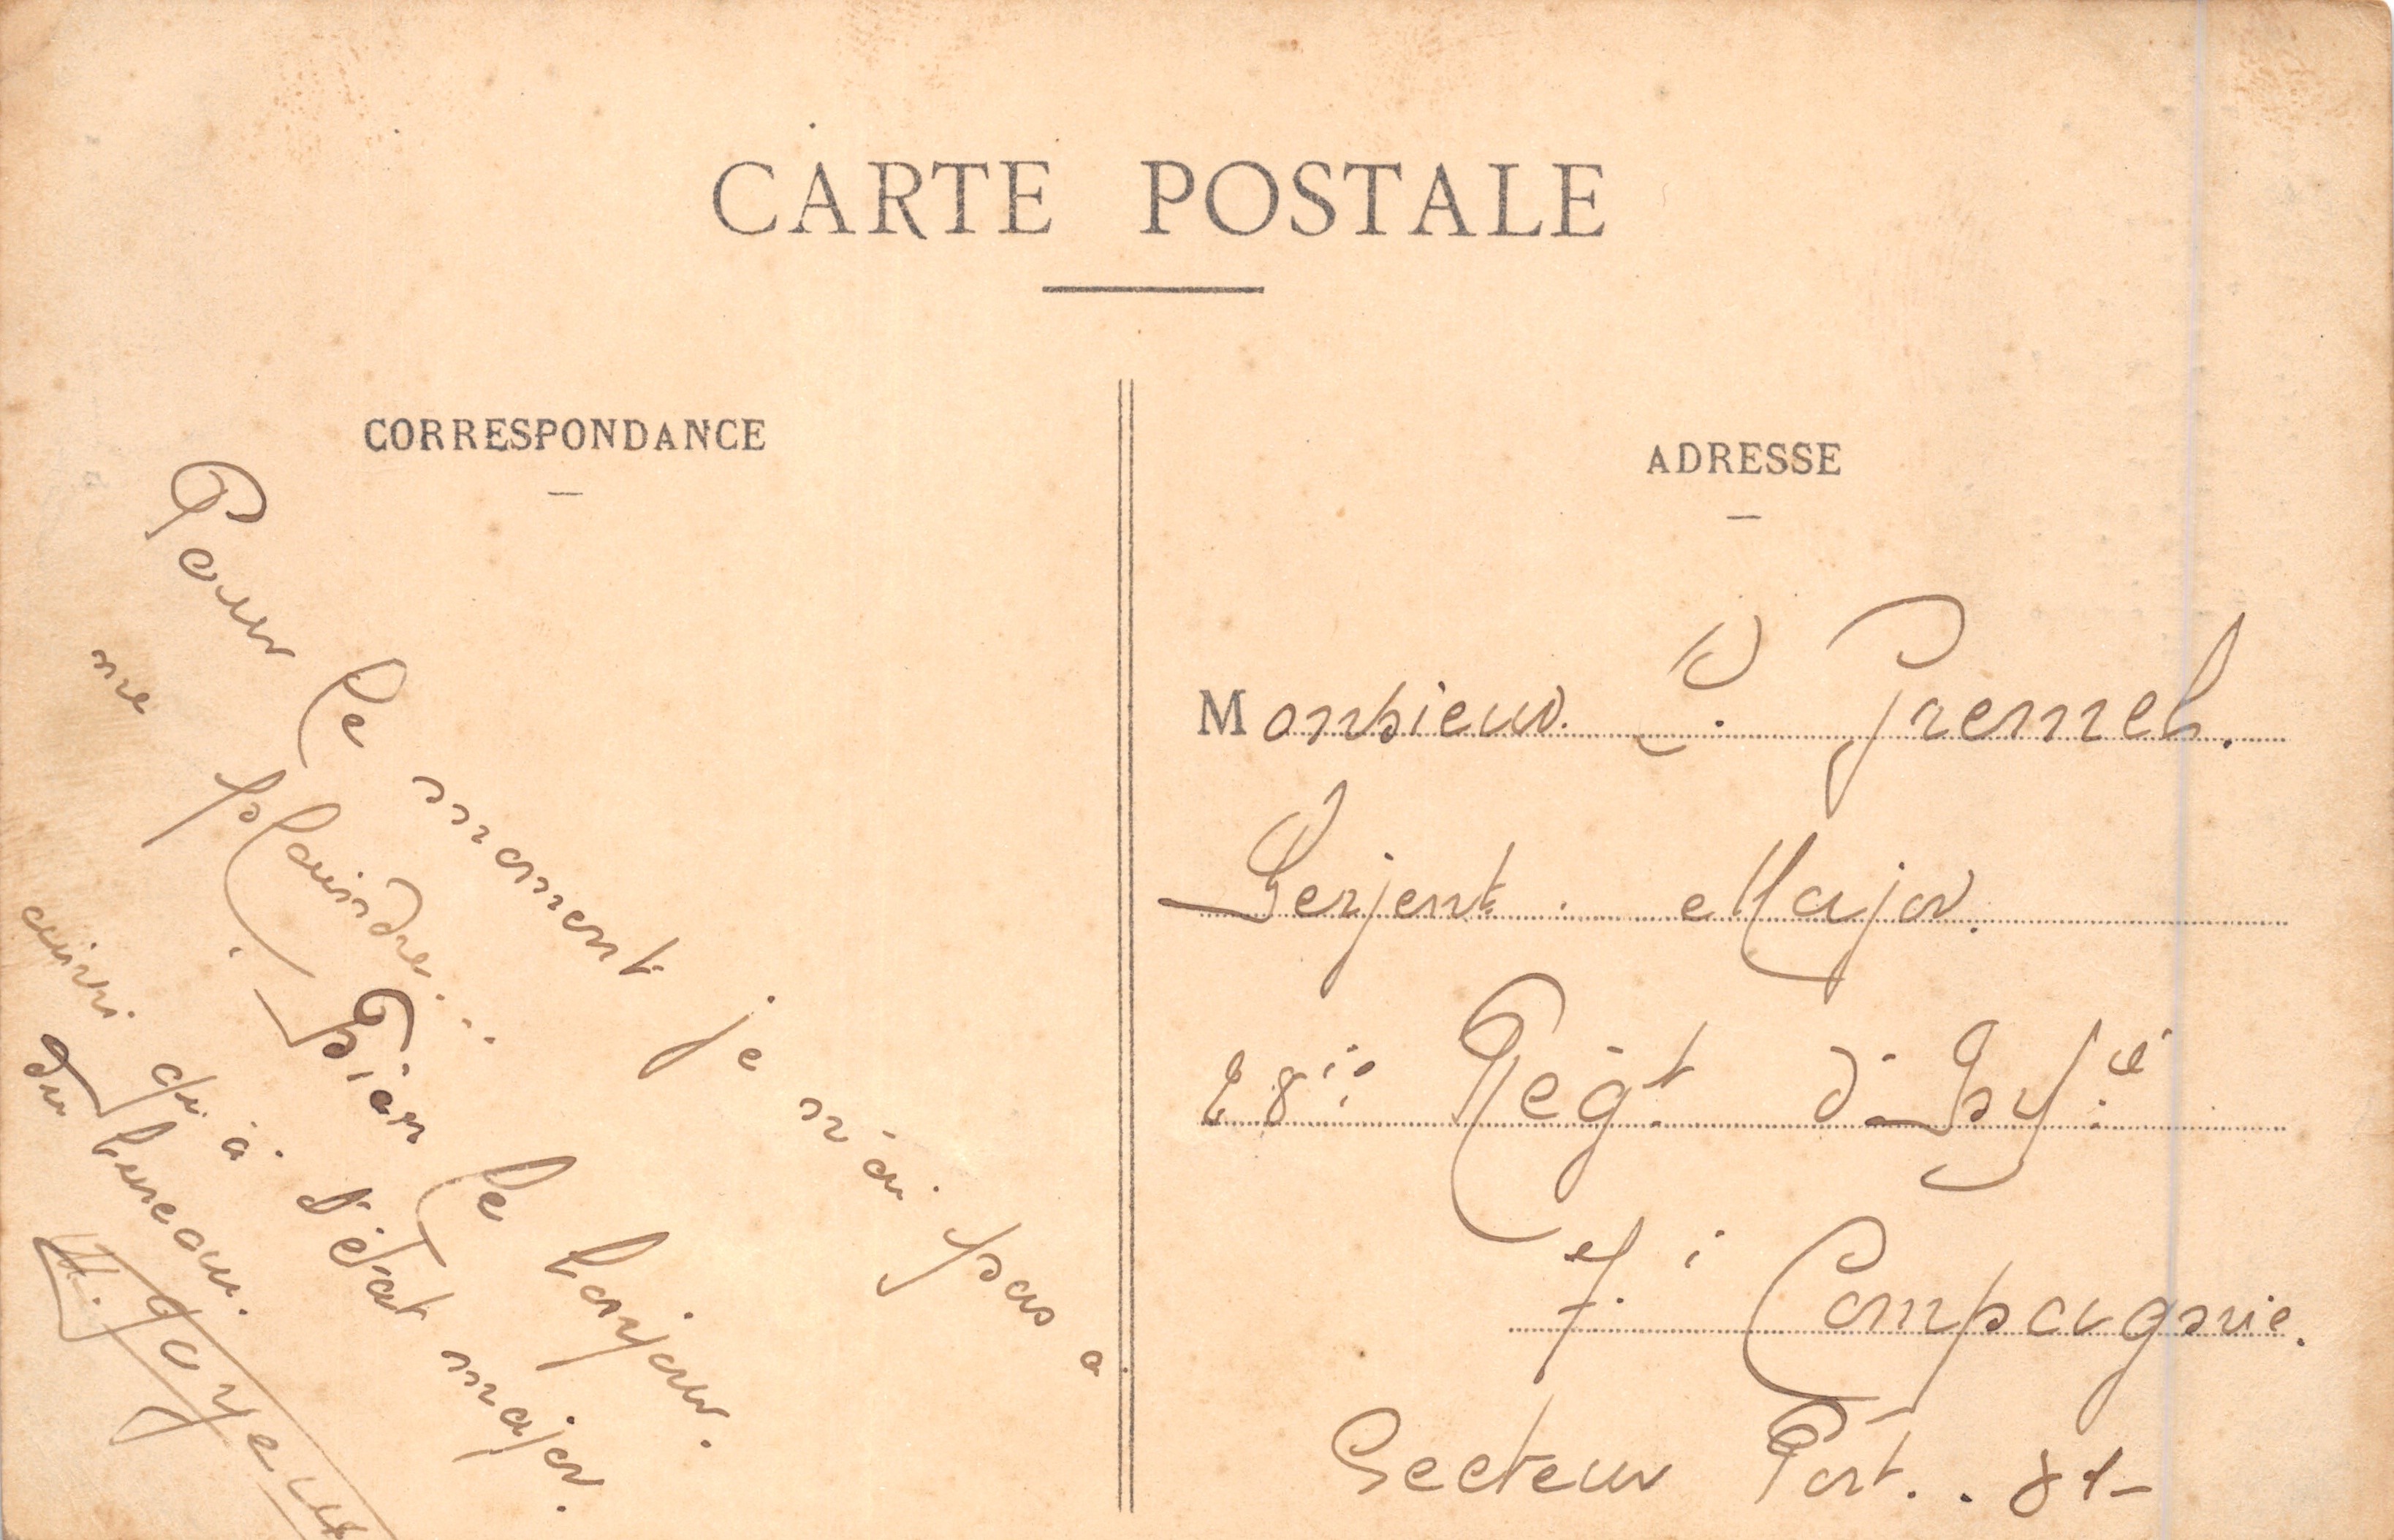 CARTE POSTALE
CORRESPONDANCE
Pour le moment je n'ai pas à
me plaindre...
Bien le bonjour.
ainsi qu'à l'état major.
du bureau.
ADRESSE
Monsieur
Serjent. Major.
28ie Regt d'Inf.ie
7.e Compagnie.
Secteur Post.. 81-